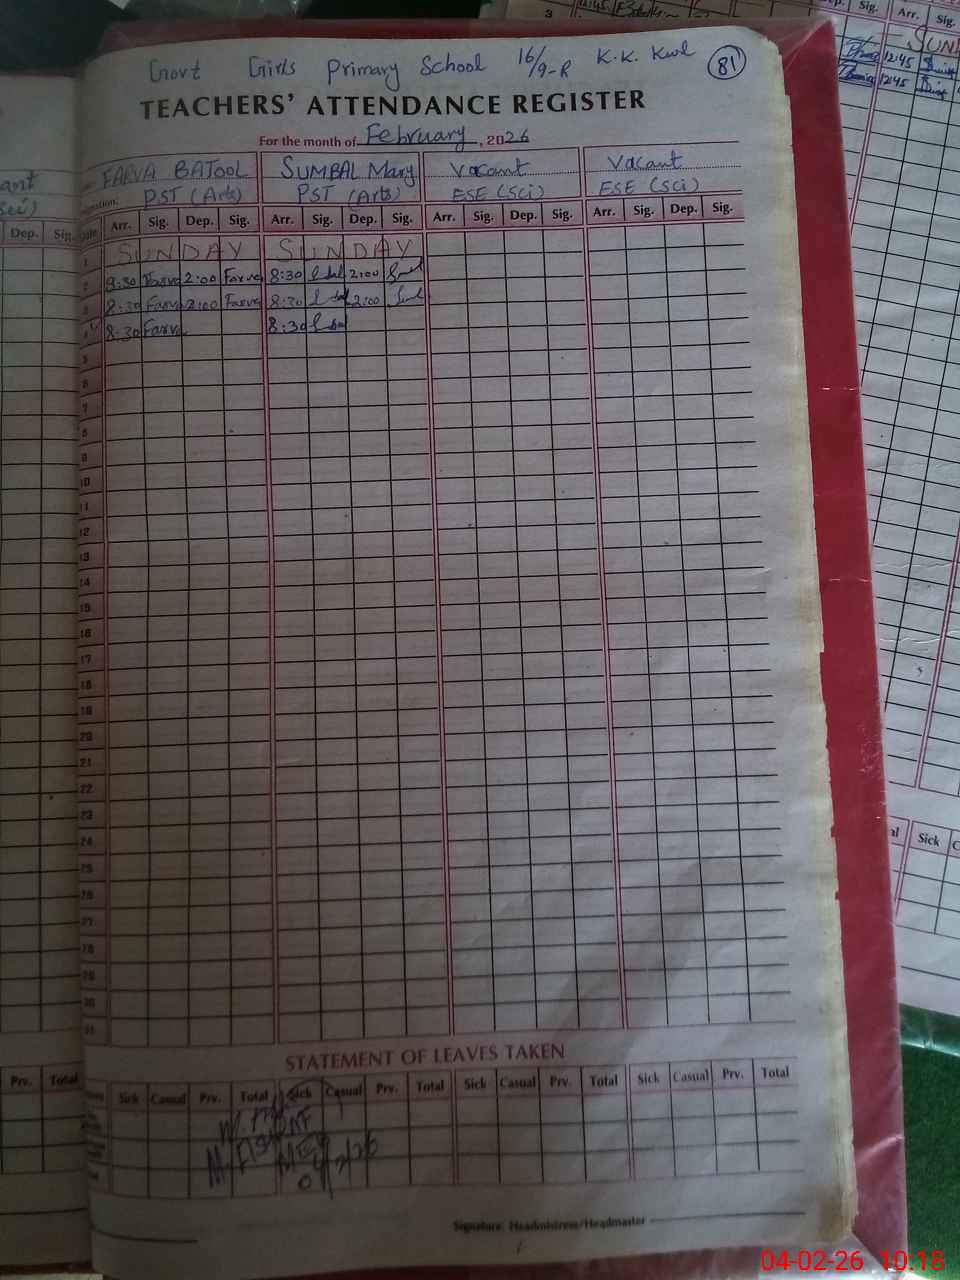 Govt Girls Primary School 16/9-R K.K. Kwl 81
TEACHERS' ATTENDANCE REGISTER
For the month of February, 2026
FARVA BATOOL SUMBAL Mary Vacant Vacant
PST (Arts) PST (Arts) ESE (Sci) ESE (Sci)
Date Arr. Sig. Dep. Sig. Arr. Sig. Dep. Sig. Arr. Sig. Dep. Sig. Arr. Sig. Dep. Sig.
1 SUNDAY SUNDAY
2 8:30 Farva 2:00 Farva 8:30 2:00
3 8:30 Farva 2:00 Farva 8:30 2:00
4 8:30 Farva 8:30
5
6
7
8
9
10
11
12
13
14
15
16
17
18
19
20
21
22
23
24
25
26
27
28
29
30
31
STATEMENT OF LEAVES TAKEN
Sick Casual Prv. Total Sick Casual Prv. Total Sick Casual Prv. Total Sick Casual Prv. Total
Signature: Headmistress/Headmaster
Dep. Sig.
Prv. Total
Arr. Sig.
12:45
12:45
Sick
04-02-26 10:18